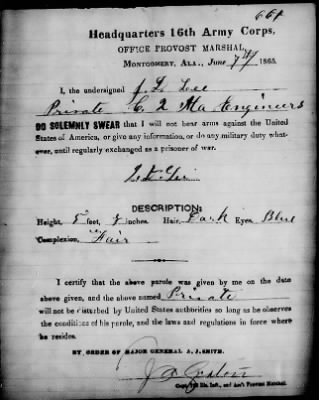 Headquarters 16th Army Corps,
OFFICE PROVOST MARSHAL,
MONTGOMERY, ALA., June 7th 1865.
I, the undersigned J. L. Lee
Private C. 2 Engineers
DO SOLEMNLY SWEAR that I will not bear arms against the United
States of America, or give any information, or do any military duty what-
ever, until regularly exchanged as a prisoner of war.
DESCRIPTION:
Height, 5 feet, 8 inches. Hair, Dark Eyes, Blue
Complexion, Fair
I certify that the above parole was given by me on the date
above given, and the above named Private
will not be disturbed by United States authorities so long as he observes
the conditions of his parole, and the laws and regulations in force where
he resides.
BY ORDER OF MAJOR GENERAL A. J. SMITH.
Capt. Ills. Inft., and Ass't Provost Marshal.